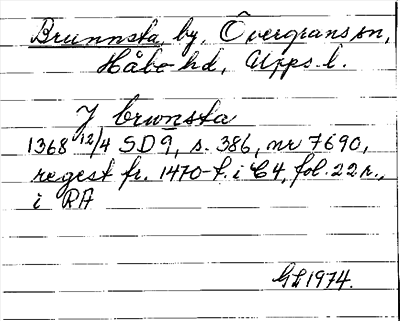 Brunnsta, by, Övergrans sn,
Håbo hd, Upps. l.
J brwnsta
1368 12/4 SD 9, s. 386, nr 7690,
regest fr. 1470-t. i C4, fol. 22 r.,
i RA
GL 1974.